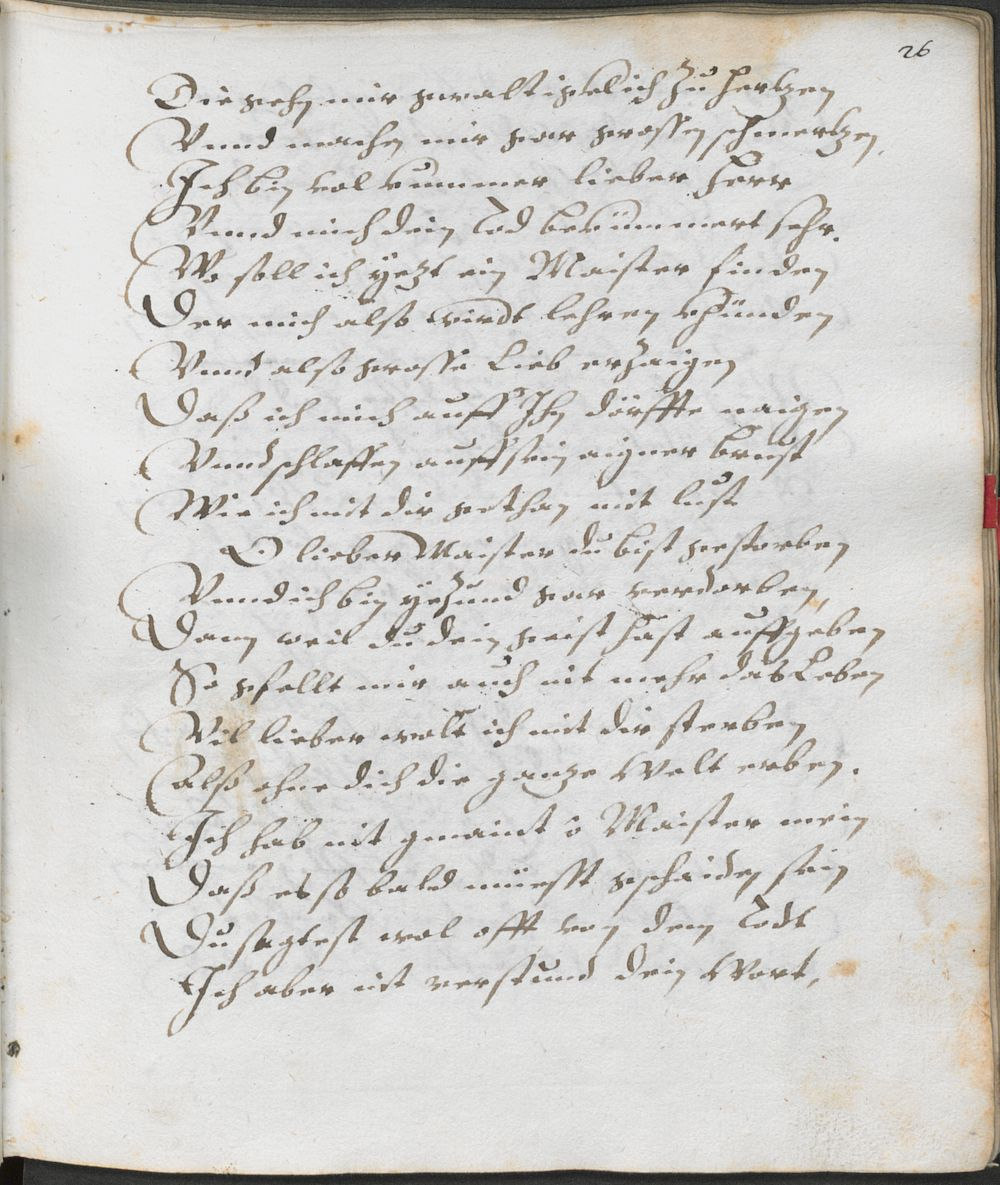 26
Die gehn mir gwaltigelich zu hertzen
Vnnd machen mir gar grossen schmertzen,
Ich bin vol kummer lieber herr
Vnnd mich dein Tod bekümmert sehr.
Wo soll ich yetzt ein Maister finden
Der mich also wirdt lehren khünden
Vnnd also grosse Lieb erzaigen
Daß ich mich auff Ihn dörffte naigen
Vnnd schlaffen auff sein aigner brust
Wie ich mit dir gethan mit lust
O lieber Maister du bist gestorben
Vnnd ich bin yezund gar verdorben,
Dann weil du dein geist hast auffgeben
So gfellt mir auch nit mehr das Leben
Vil lieber wolt ich mit dir sterben
Alß ohne dich die gantze Welt erben.
Ich hab nit gmaint ô Maister mein
Daß es so bald müesst gschaiden sein
Du sagtest wol offt von dem Todt
Ich aber nit verstund dein Wort,